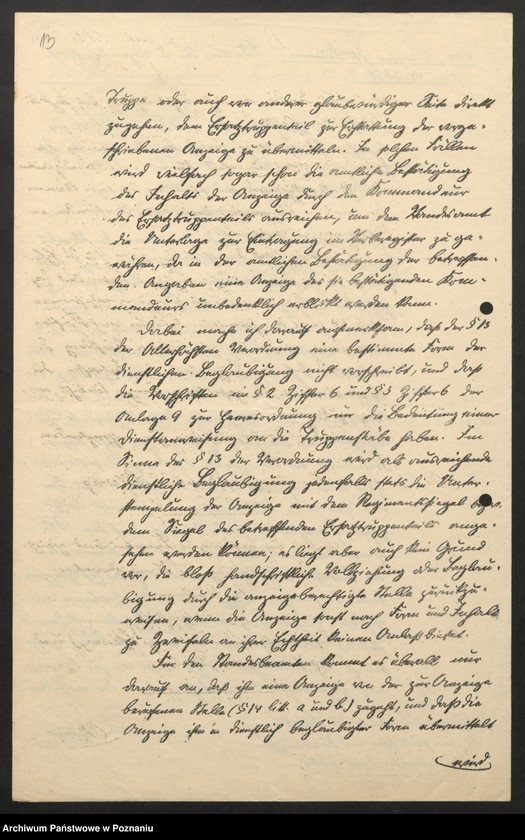 13
Truppe oder auch von anderer glaubwürdiger Seite direkt
zugehen, dem Ersatztruppenteil zur Erstattung der vorge-
schriebenen Anzeige zu übermitteln. In solchen Fällen
wird vielfach sogar schon die amtliche Bestätigung
des Inhalts der Anzeige durch den Kommandeur
des Ersatztruppenteils ausreichen, um dem Standesamt
die Unterlage zur Eintragung im Sterberegister zu ge-
währen, da in der amtlichen Bestätigung der betreffen-
den Angaben eine Anzeige des sie bestätigenden Kom-
mandeurs unbedenklich erblickt werden kann.
Dabei mache ich darauf aufmerksam, daß der § 13
der Allerhöchsten Verordnung eine bestimmte Form der
dienstlichen Beglaubigung nicht vorschreibt, und daß
die Vorschriften im § 2 Ziffer 6 und § 3 Ziffer 6 der
Anlage 9 zur Heeresordnung nur die Bedeutung einer
Dienstanweisung an die Truppenstäbe haben. Im
Sinne des § 13 der Verordnung wird als ausreichende
dienstliche Beglaubigung jedenfalls stets die Unter-
stempelung der Anzeige mit dem Regimentssiegel bezw.
dem Siegel des betreffenden Ersatztruppenteils ange-
sehen werden können; es liegt aber auch kein Grund
vor, die bloß handschriftliche Vollziehung oder Beglau-
bigung durch die anzeigeberechtigte Stelle zurückzu-
weisen, wenn die Anzeige sonst nach Form und Inhalt
zu Zweifeln an ihrer Echtheit keinen Anlaß bietet.
Für den Standesbeamten kommt es überall nur
darauf an, daß ihm eine Anzeige von der zur Anzeige
berufenen Stelle (§ 14 litt. a und b) zugeht, und daß die
Anzeige ihm in dienstlich beglaubigter Form übermittelt
wird
Archiwum Państwowe w Poznaniu